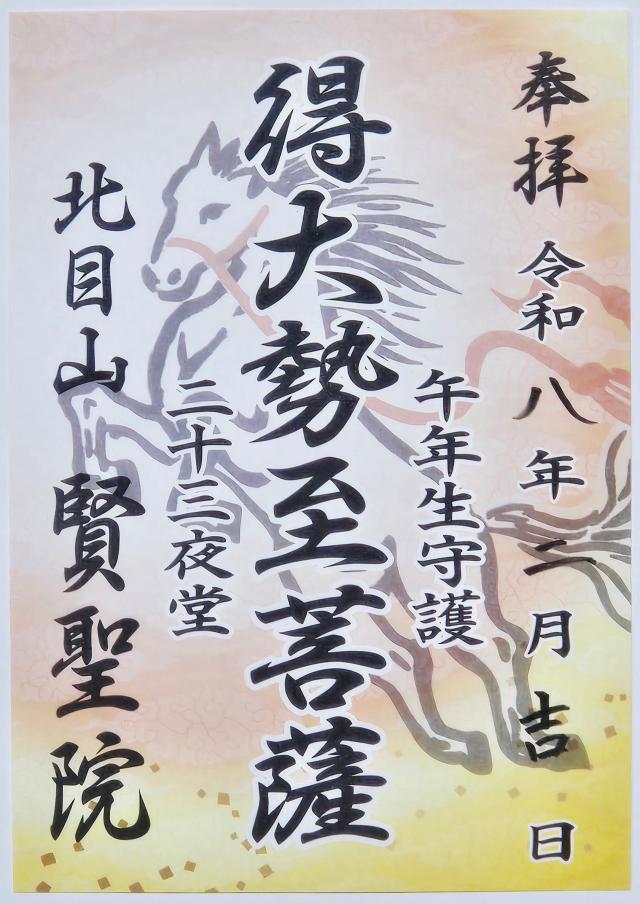 奉拝 令和八年二月吉日
午年生守護
得大勢至菩薩
二十三夜堂
北目山 賢聖院